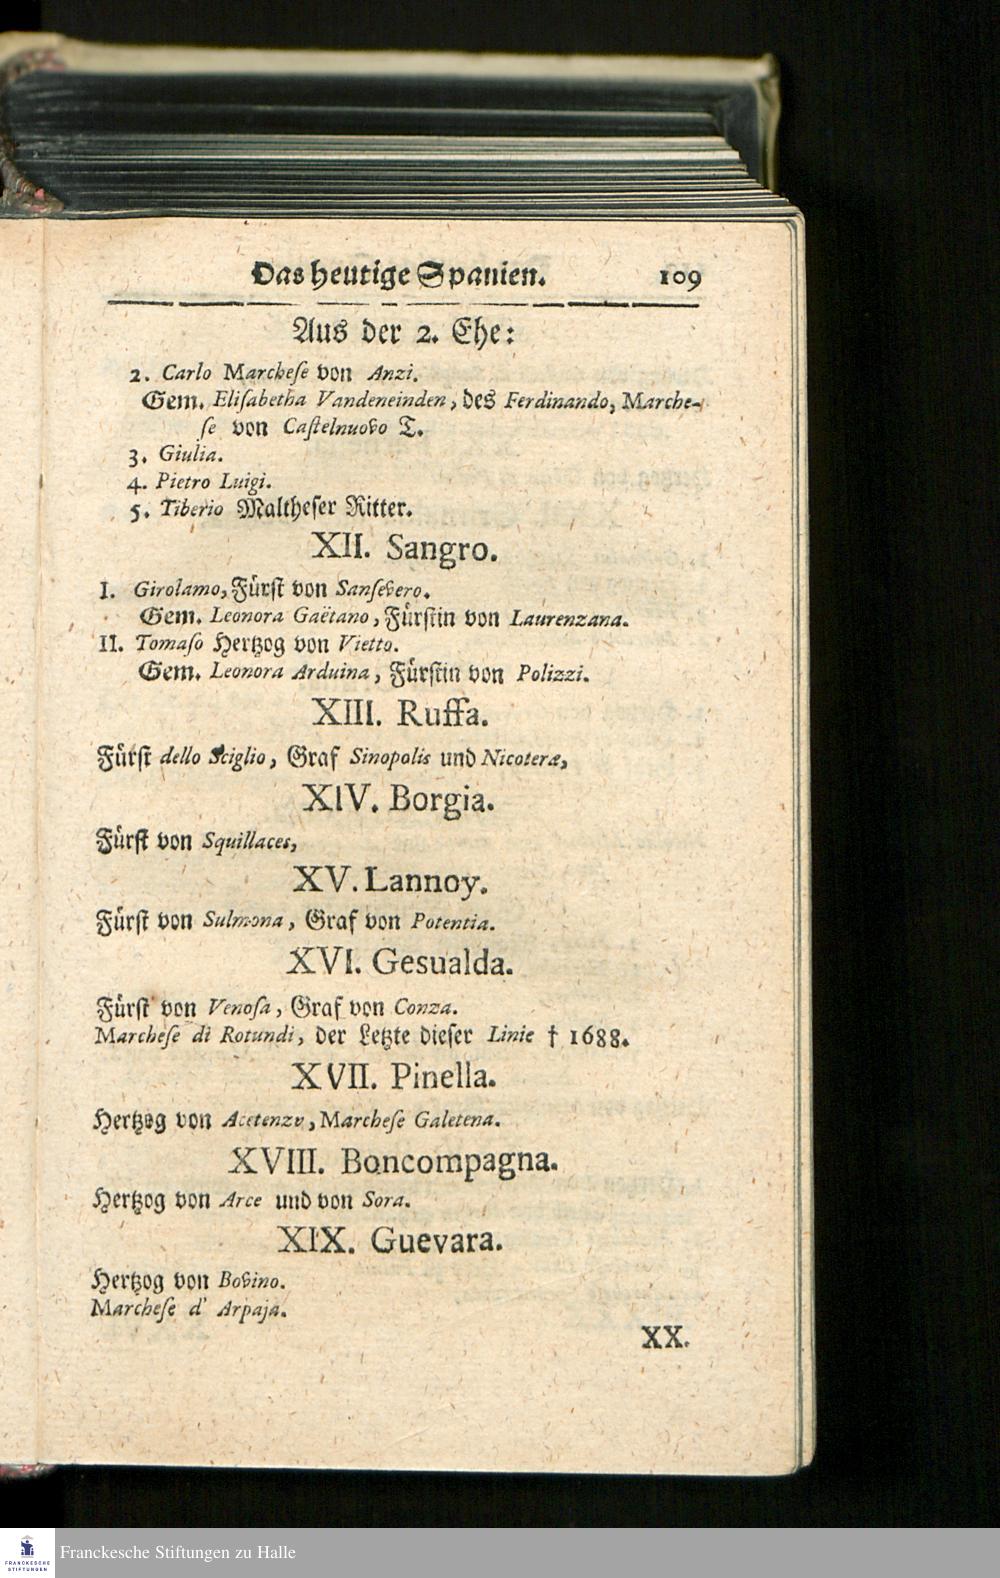 Das heutige Spanien. 109
Aus der 2. Ehe:
2. Carlo Marcheſe von Anzi.
Gem. Eliſabetha Vandeneinden, des Ferdinando, Marche-
ſe von Caſtelnuovo T.
3. Giulia.
4. Pietro Luigi.
5. Tiberio Maltheſer Ritter.
XII. Sangro.
I. Girolamo, Fürſt von Sanſevero.
Gem. Leonora Gaëtano, Fürſtin von Laurenzana.
II. Tomaſo Hertzog von Vietto.
Gem. Leonora Arduina, Fürſtin von Polizzi.
XIII. Ruffa.
Fürſt dello Sciglio, Graf Sinopolis und Nicoteræ,
XIV. Borgia.
Fürſt von Squillaces,
XV. Lannoy.
Fürſt von Sulmona, Graf von Potentia.
XVI. Gesualda.
Fürſt von Venoſa, Graf von Conza.
Marcheſe di Rotundi, der Letzte dieſer Linie † 1688.
XVII. Pinella.
Hertzog von Acetenzv, Marcheſe Galetena.
XVIII. Boncompagna.
Hertzog von Arce und von Sora.
XIX. Guevara.
Hertzog von Bovino.
Marcheſe d' Arpaja.
XX.
FRANCKESCHE
STIFTUNGEN
Franckesche Stiftungen zu Halle